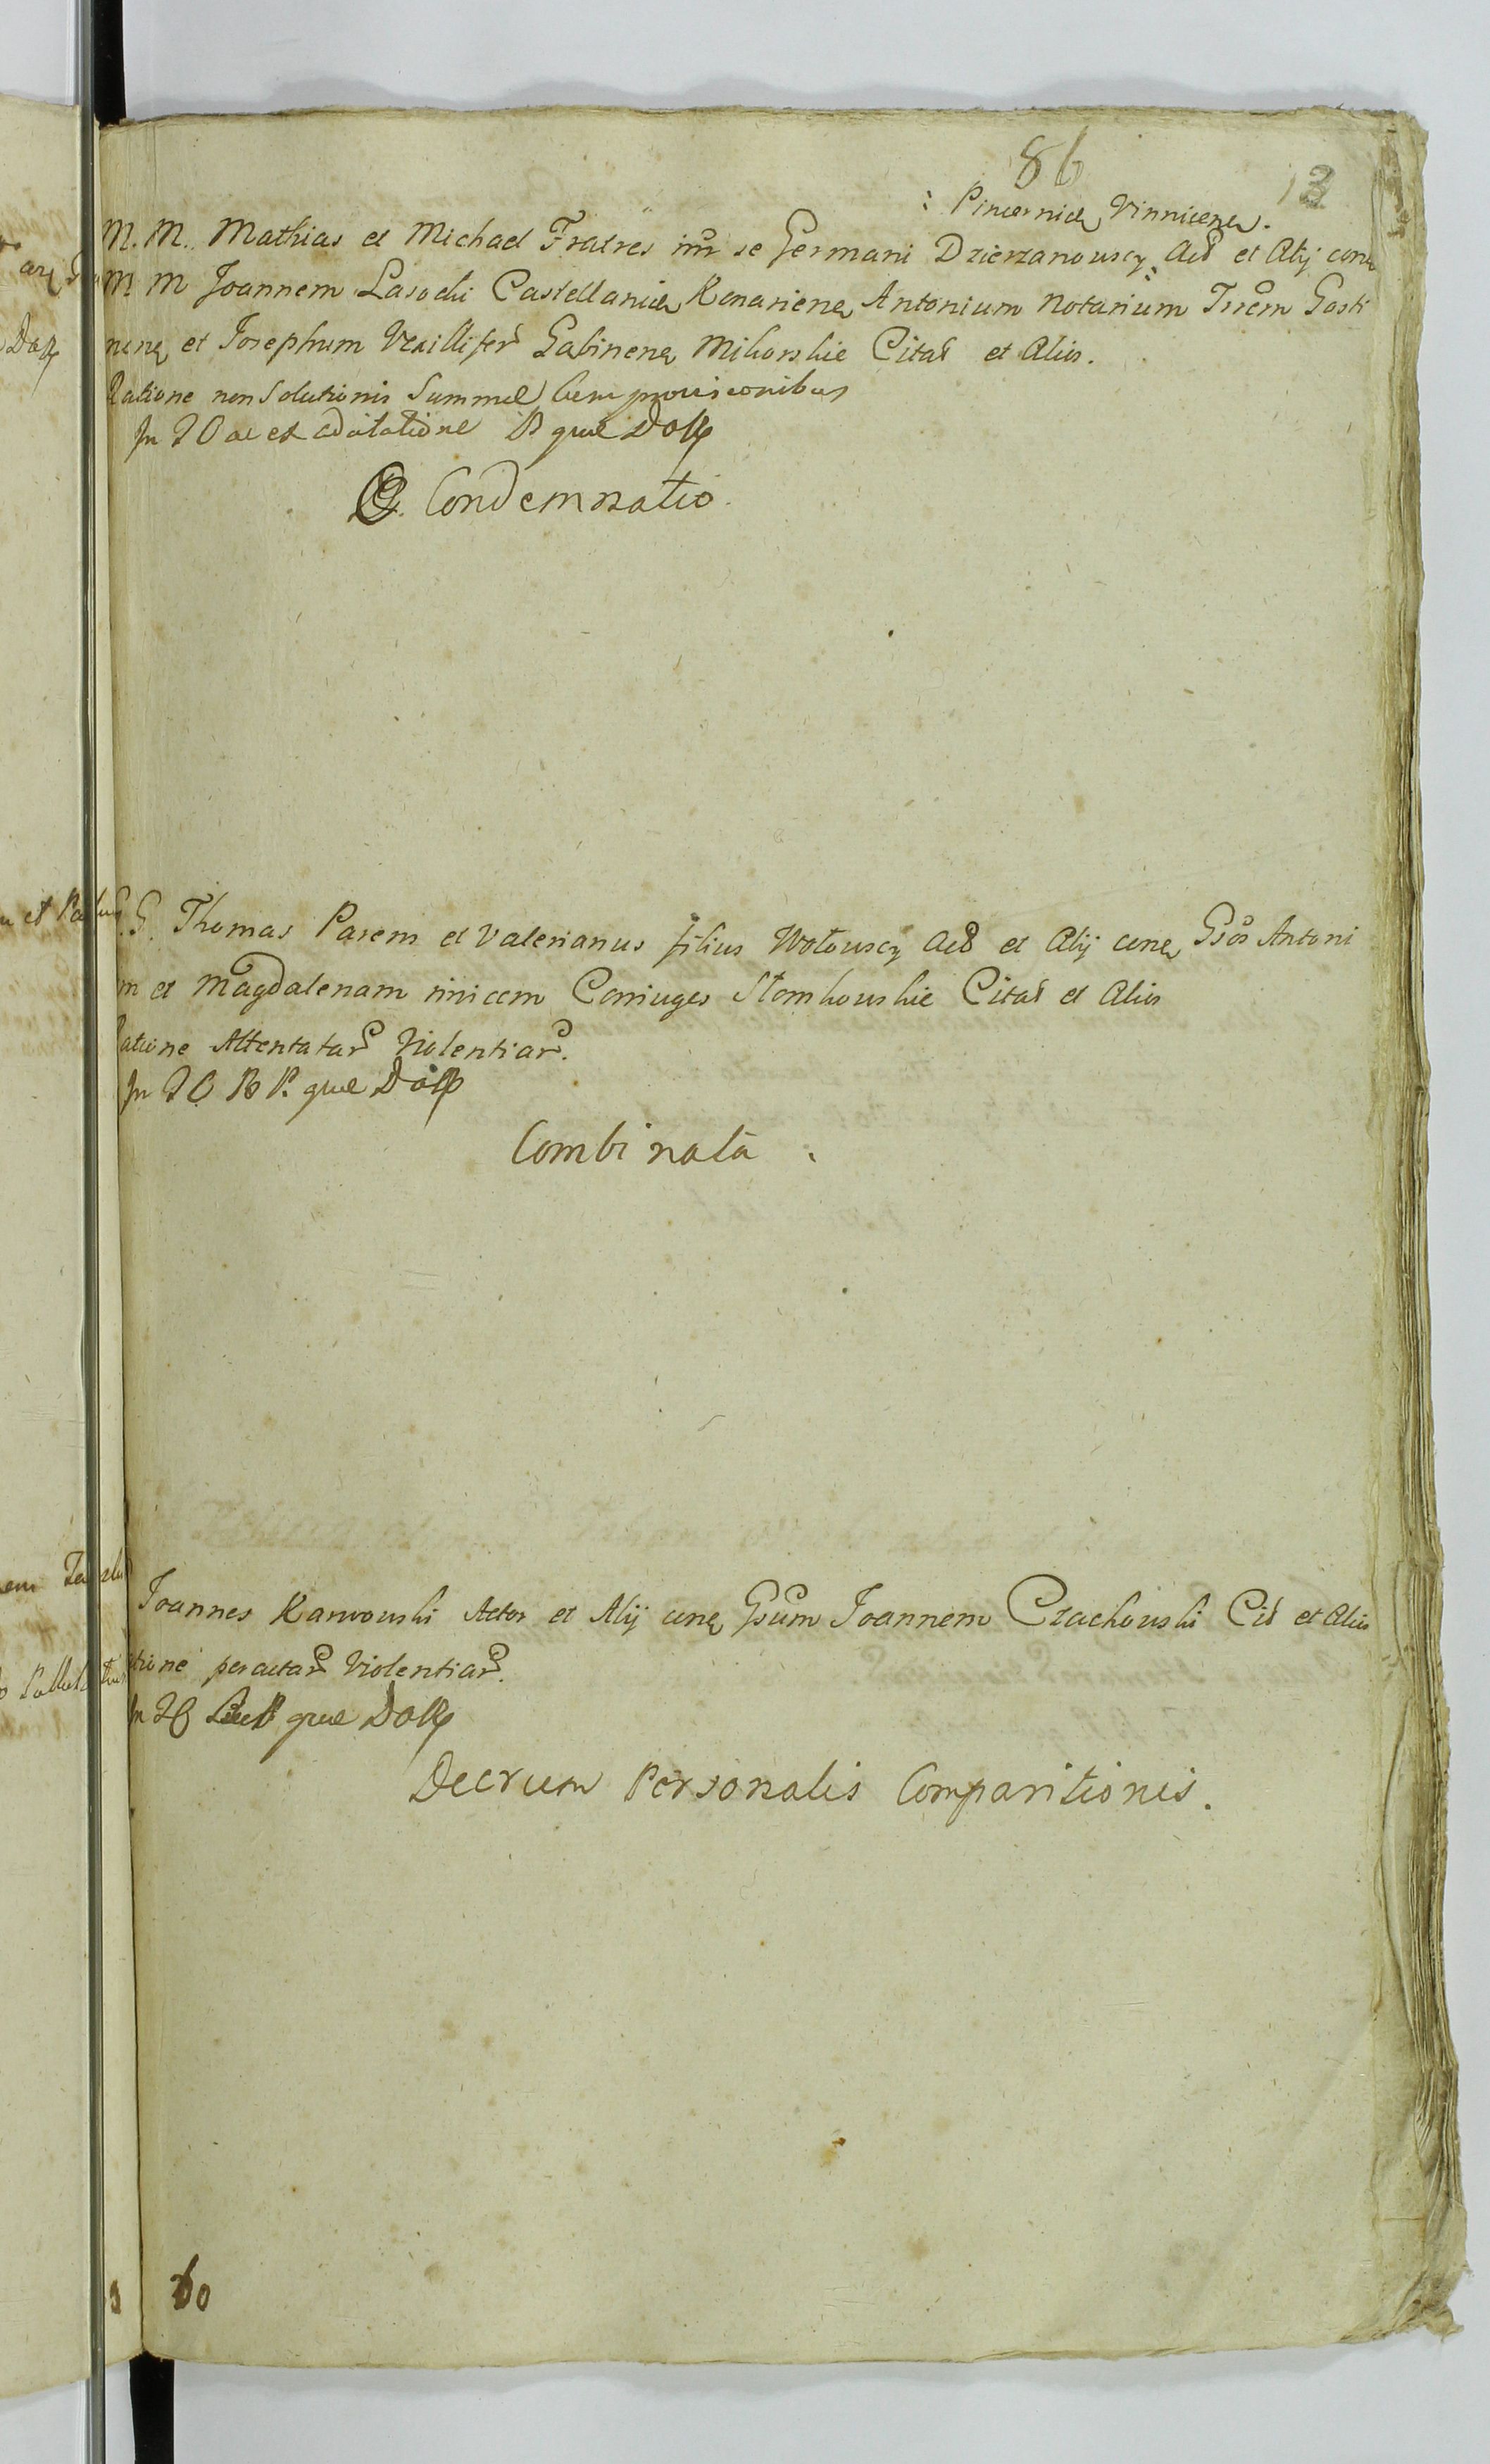 86
13
: Pincernidę Vinnicenę.
M. M. Mathias et Michael Fratres inr se Germani Dzierzanouscy: Act et Alij cona
M M Joannem Lasocki Castellanidę Konarienę Antonium Notarium Trrem Gosti
nenę et Josephum Vexillifer Gabinenę Mikorskie Citat et Alios.
Ratione non Solutionis Summae cum provisionibus
In TO ac ex adcitatione qua
Condemnatio.
G. Thomas Parens et Valerianus filius Wolouscy Act et Alij conę Gsos Antoni
m et Magdalenam invicem Coniuges Slomkouskie Citat et Alios
atione Attentatar Violentiar.
In TO qua
Combinata :
Joannes Karwouski Actor et Alij conę Gsum Joannem Czachouski Cit et Alios
tione peractar Violentiar.
In qua
Decrum Personalis Comparitionis.
60